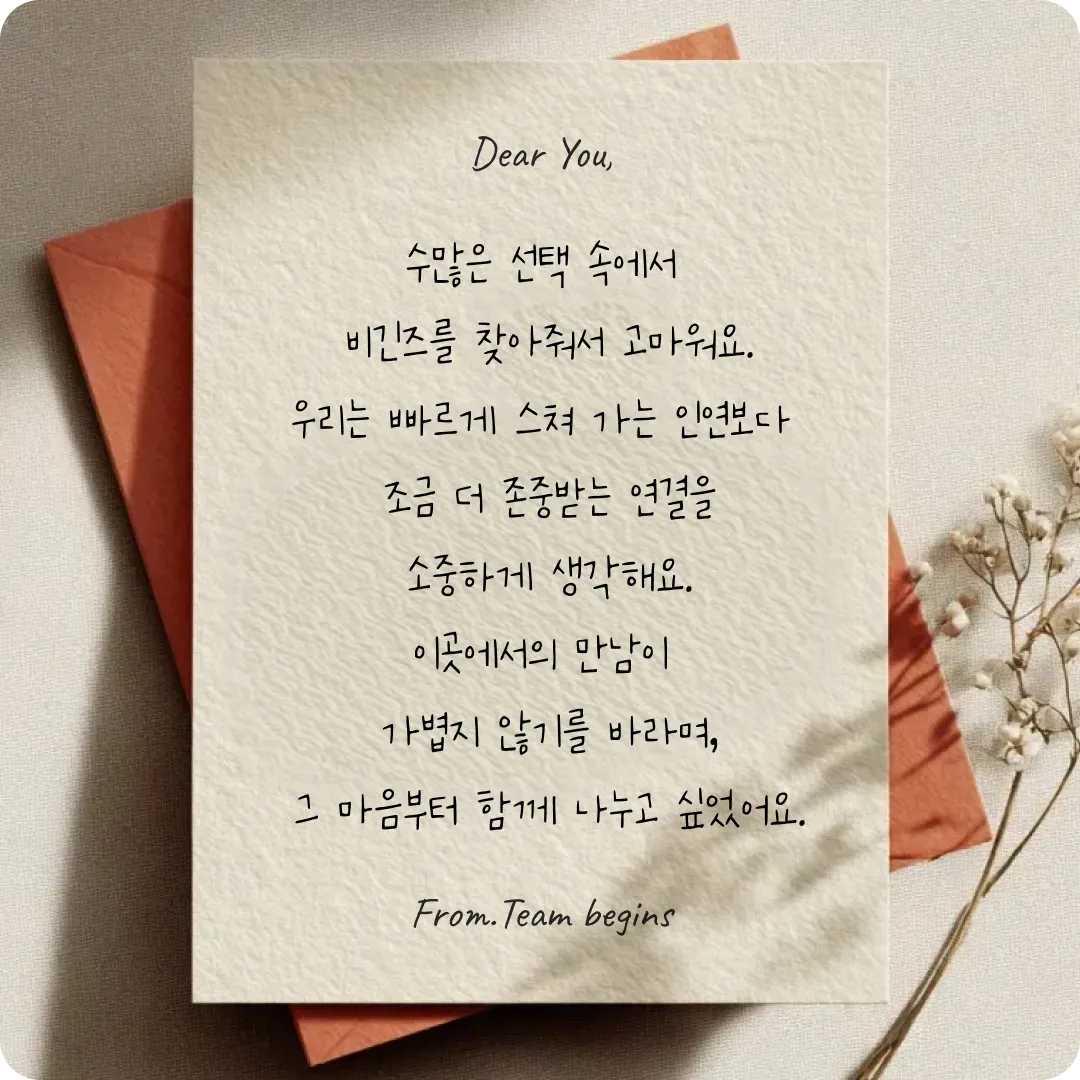 Dear You,
수많은 선택 속에서
비긴즈를 찾아줘서 고마워요.
우리는 빠르게 스쳐 가는 인연보다
조금 더 존중받는 연결을
소중하게 생각해요.
이곳에서의 만남이
가볍지 않기를 바라며,
그 마음부터 함께 나누고 싶었어요.
From.Team begins